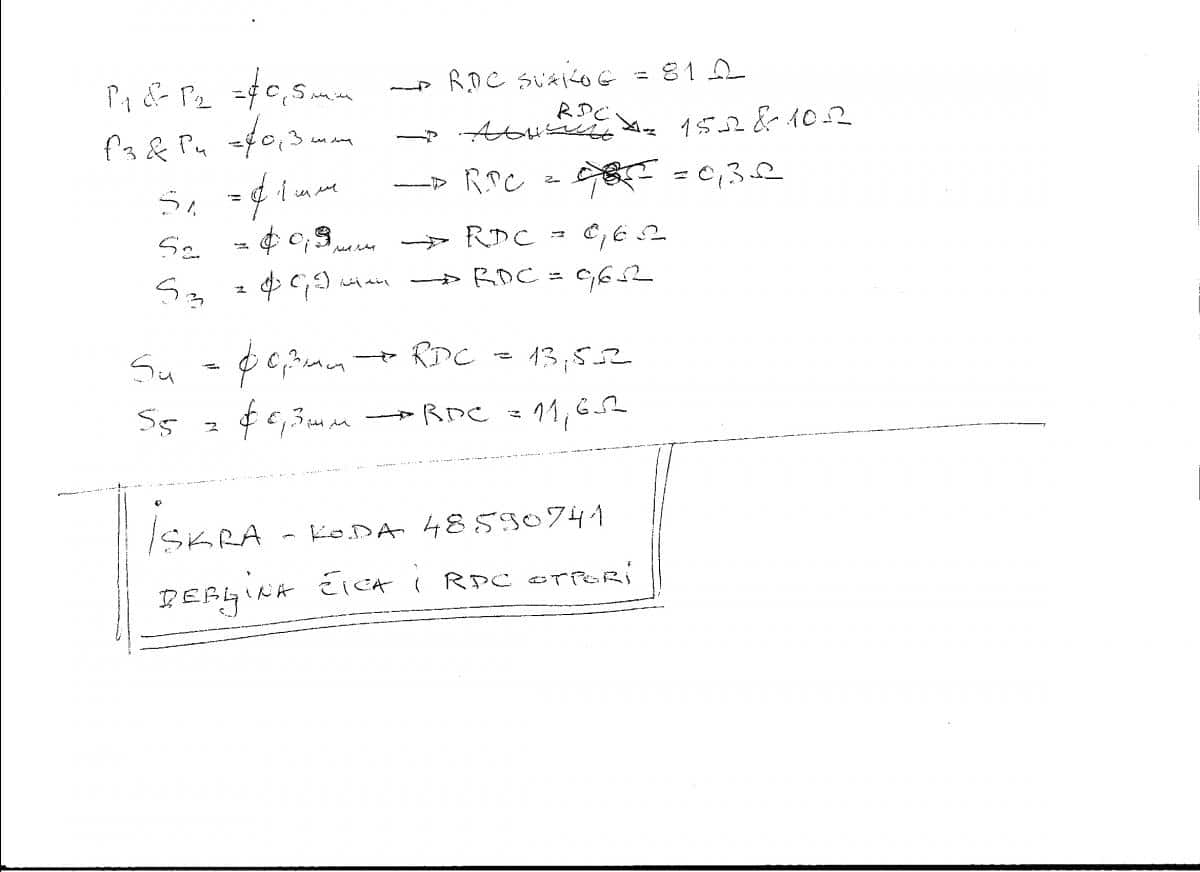 P1 & P2 = ϕ0,5mm → RDC SVAKOG = 81 Ω
P3 & P4 = ϕ0,3mm → RDC = 15Ω & 10Ω
S1 = ϕ1mm → RDC = = 0,3Ω
S2 = ϕ0,9mm → RDC = 0,6Ω
S3 = ϕ0,9mm → RDC = 0,6Ω
S4 = ϕ0,3mm → RDC = 13,5Ω
S5 = ϕ0,3mm → RDC = 11,6Ω
ISKRA - KODA 48590741
DEBLJINA ŽICA i RDC OTPORI